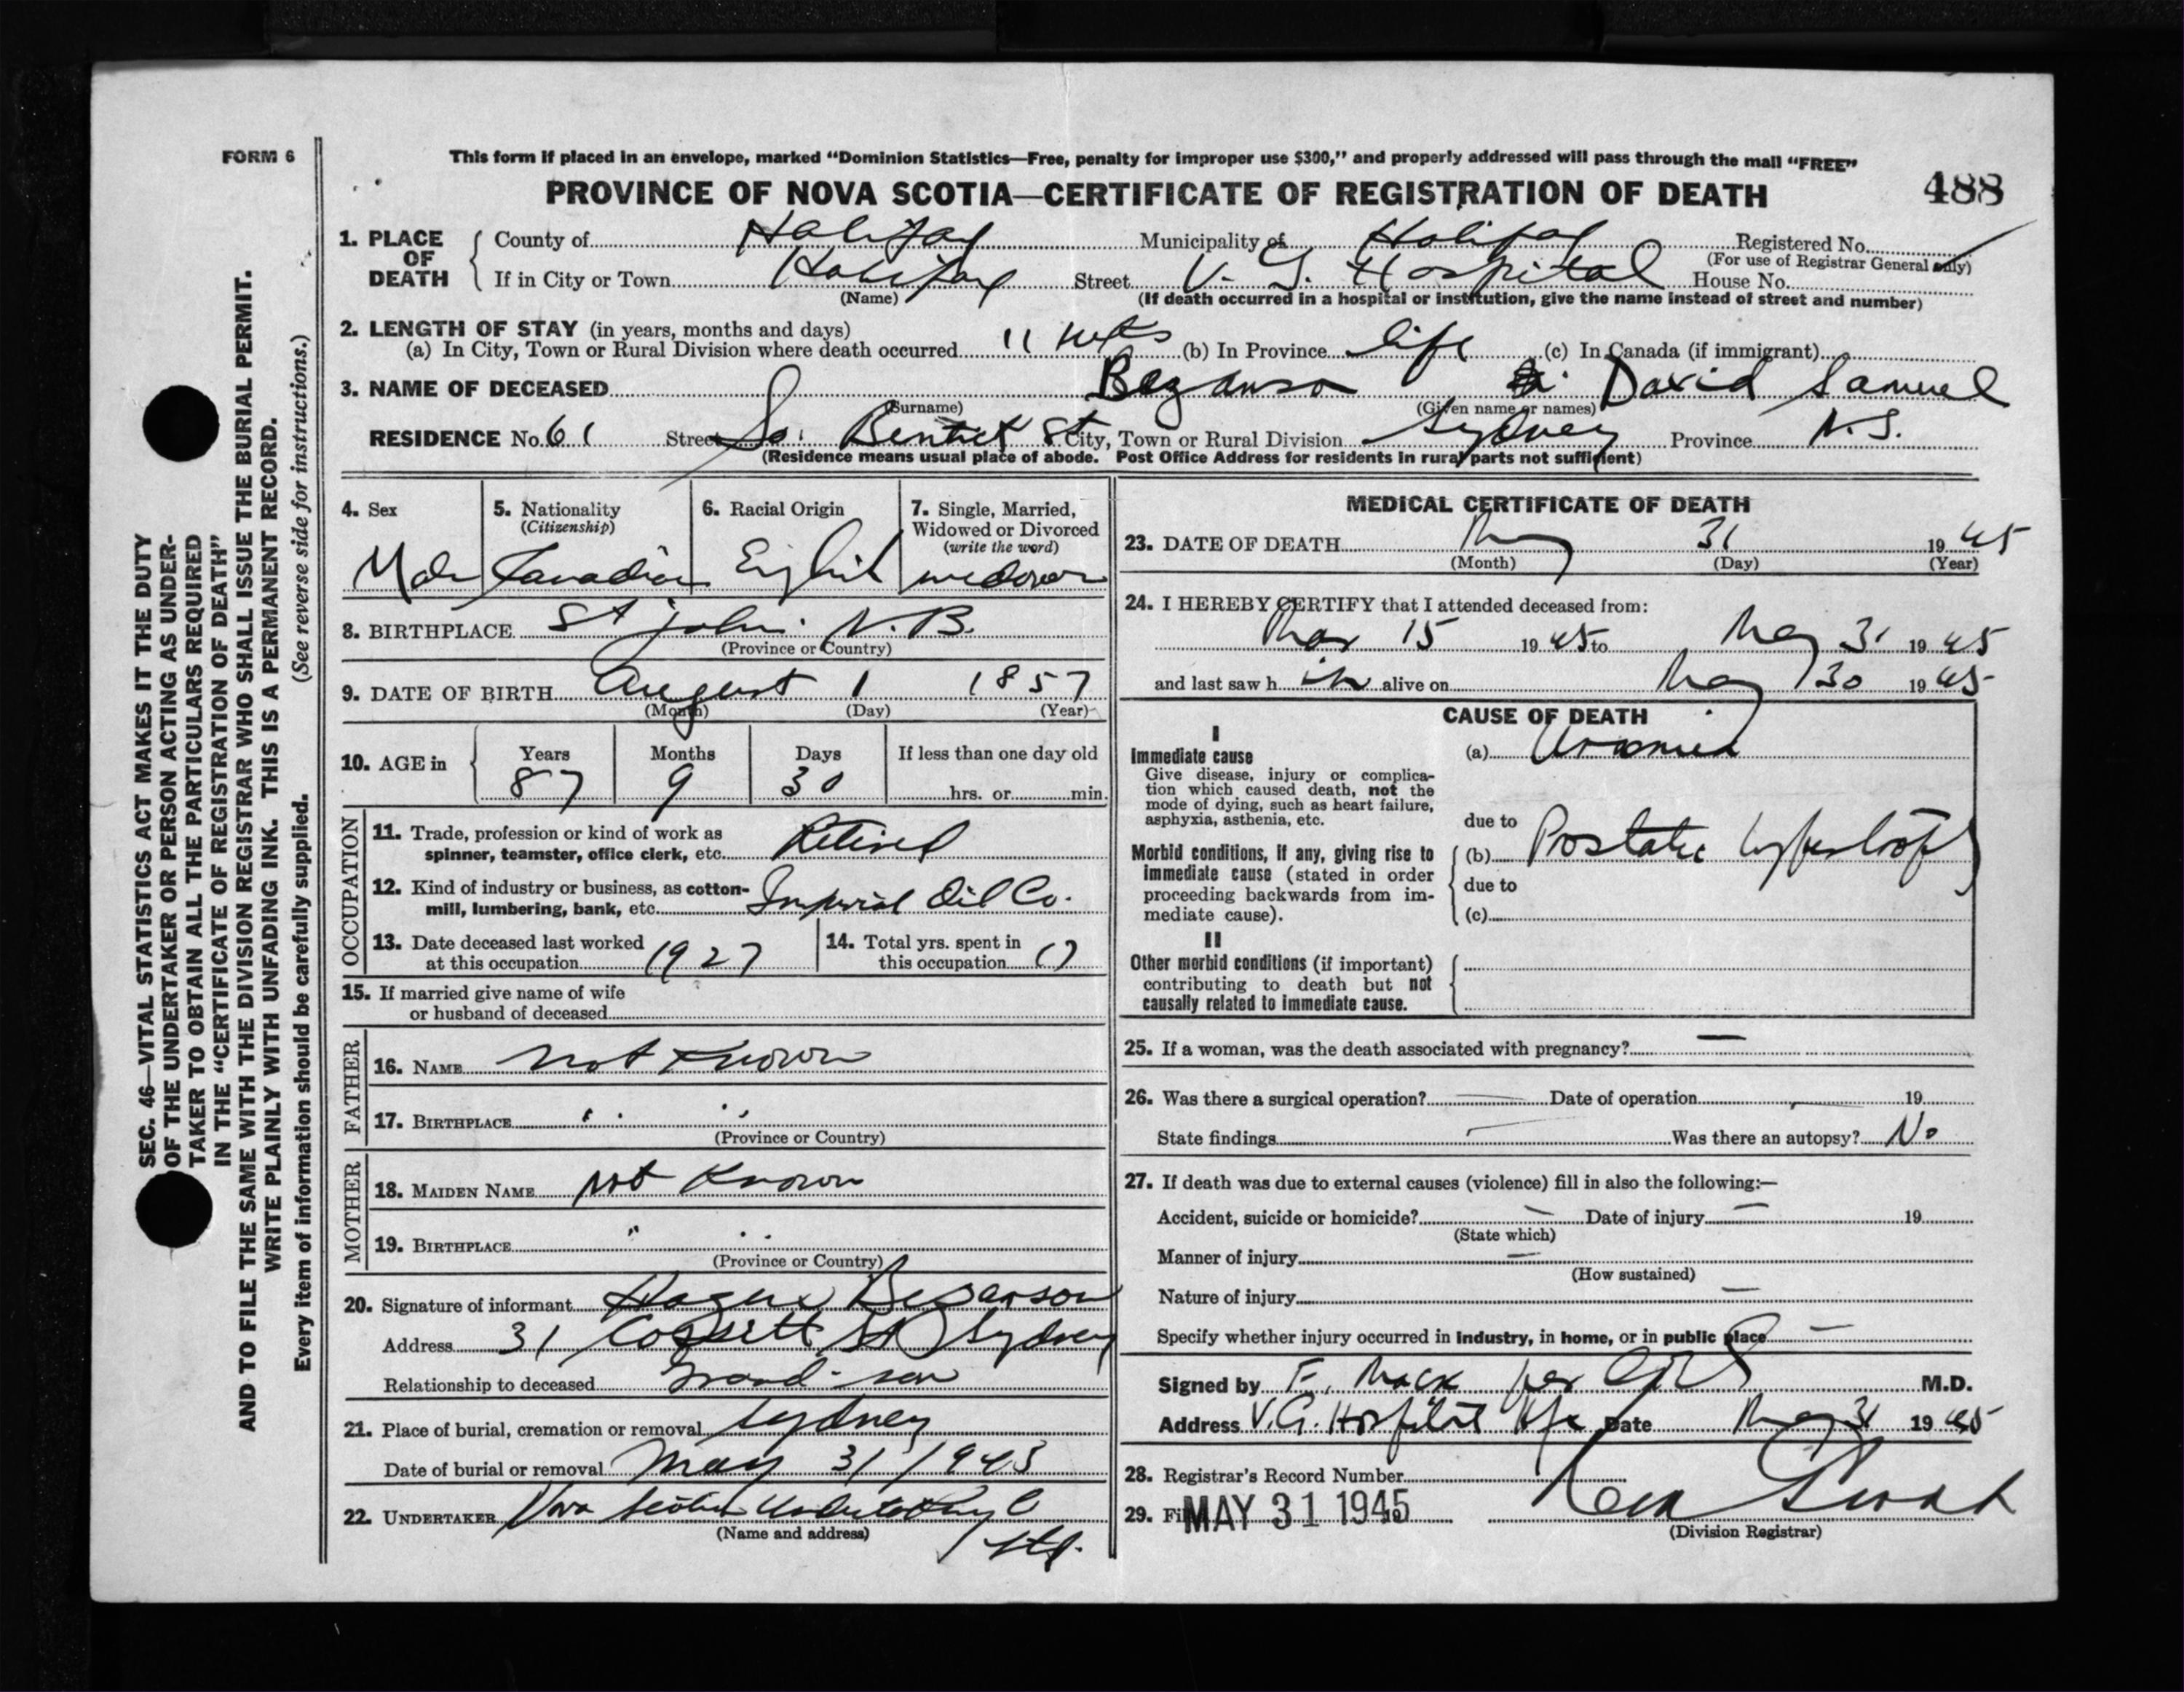 FORM 6
This form if placed in an envelope, marked “Dominion Statistics—Free, penalty for improper use $300,” and properly addressed will pass through the mail “FREE”
PROVINCE OF NOVA SCOTIA—CERTIFICATE OF REGISTRATION OF DEATH 488
1. PLACE OF DEATH
County of Halifax Municipality of Halifax Registered No.
(For use of Registrar General only)
If in City or Town Halifax Street V. G. Hospital House No.
(Name) (If death occurred in a hospital or institution, give the name instead of street and number)
2. LENGTH OF STAY (in years, months and days)
(a) In City, Town or Rural Division where death occurred 11 wks (b) In Province life (c) In Canada (if immigrant)
3. NAME OF DECEASED Bezanson David Samuel
(Surname) (Given name or names)
RESIDENCE No. 61 Street So. St City, Town or Rural Division Sydney Province N.S.
(Residence means usual place of abode. Post Office Address for residents in rural parts not sufficient)
4. Sex
Male
5. Nationality
(Citizenship)
Canadian
6. Racial Origin
English
7. Single, Married,
Widowed or Divorced
(write the word)
widower
8. BIRTHPLACE St John N. B.
(Province or Country)
9. DATE OF BIRTH August 1 1857
(Month) (Day) (Year)
10. AGE in
Years Months Days If less than one day old
87 9 30 hrs. or min.
OCCUPATION
11. Trade, profession or kind of work as
spinner, teamster, office clerk, etc. Retired
12. Kind of industry or business, as cotton-
mill, lumbering, bank, etc. Imperial Oil Co.
13. Date deceased last worked
at this occupation 1927
14. Total yrs. spent in
this occupation 17
15. If married give name of wife
or husband of deceased
FATHER
16. NAME not known
17. BIRTHPLACE " "
(Province or Country)
MOTHER
18. MAIDEN NAME Not Known
19. BIRTHPLACE " "
(Province or Country)
20. Signature of informant Bezanson
Address 31 Cossett St Sydney
Relationship to deceased Grand-son
21. Place of burial, cremation or removal Sydney
Date of burial or removal May 31 1945
22. UNDERTAKER Nova Scotia Undertaking C
(Name and address)
MEDICAL CERTIFICATE OF DEATH
23. DATE OF DEATH May 31 1945
(Month) (Day) (Year)
24. I HEREBY CERTIFY that I attended deceased from:
Mar 15 1945 to May 31 1945
and last saw h im alive on May 30 1945
CAUSE OF DEATH
I
Immediate cause
Give disease, injury or complica-
tion which caused death, not the
mode of dying, such as heart failure,
asphyxia, asthenia, etc.
(a) Uraemia
due to
Morbid conditions, if any, giving rise to
immediate cause (stated in order
proceeding backwards from im-
mediate cause).
(b) Prostatic hypertrophy
due to
(c)
II
Other morbid conditions (if important)
contributing to death but not
causally related to immediate cause.
25. If a woman, was the death associated with pregnancy? —
26. Was there a surgical operation? — Date of operation — 19
State findings — Was there an autopsy? No
27. If death was due to external causes (violence) fill in also the following:—
Accident, suicide or homicide? — Date of injury — 19
(State which)
Manner of injury —
(How sustained)
Nature of injury —
Specify whether injury occurred in industry, in home, or in public place —
Signed by F. Mack per M.D.
Address V.G. Hospital Hfx Date May 31 1945
28. Registrar's Record Number
29. Fi MAY 31 1945
(Division Registrar)
SEC. 46—VITAL STATISTICS ACT MAKES IT THE DUTY
OF THE UNDERTAKER OR PERSON ACTING AS UNDER-
TAKER TO OBTAIN ALL THE PARTICULARS REQUIRED
IN THE “CERTIFICATE OF REGISTRATION OF DEATH”
AND TO FILE THE SAME WITH THE DIVISION REGISTRAR WHO SHALL ISSUE THE BURIAL PERMIT.
WRITE PLAINLY WITH UNFADING INK. THIS IS A PERMANENT RECORD.
Every item of information should be carefully supplied. (See reverse side for instructions.)